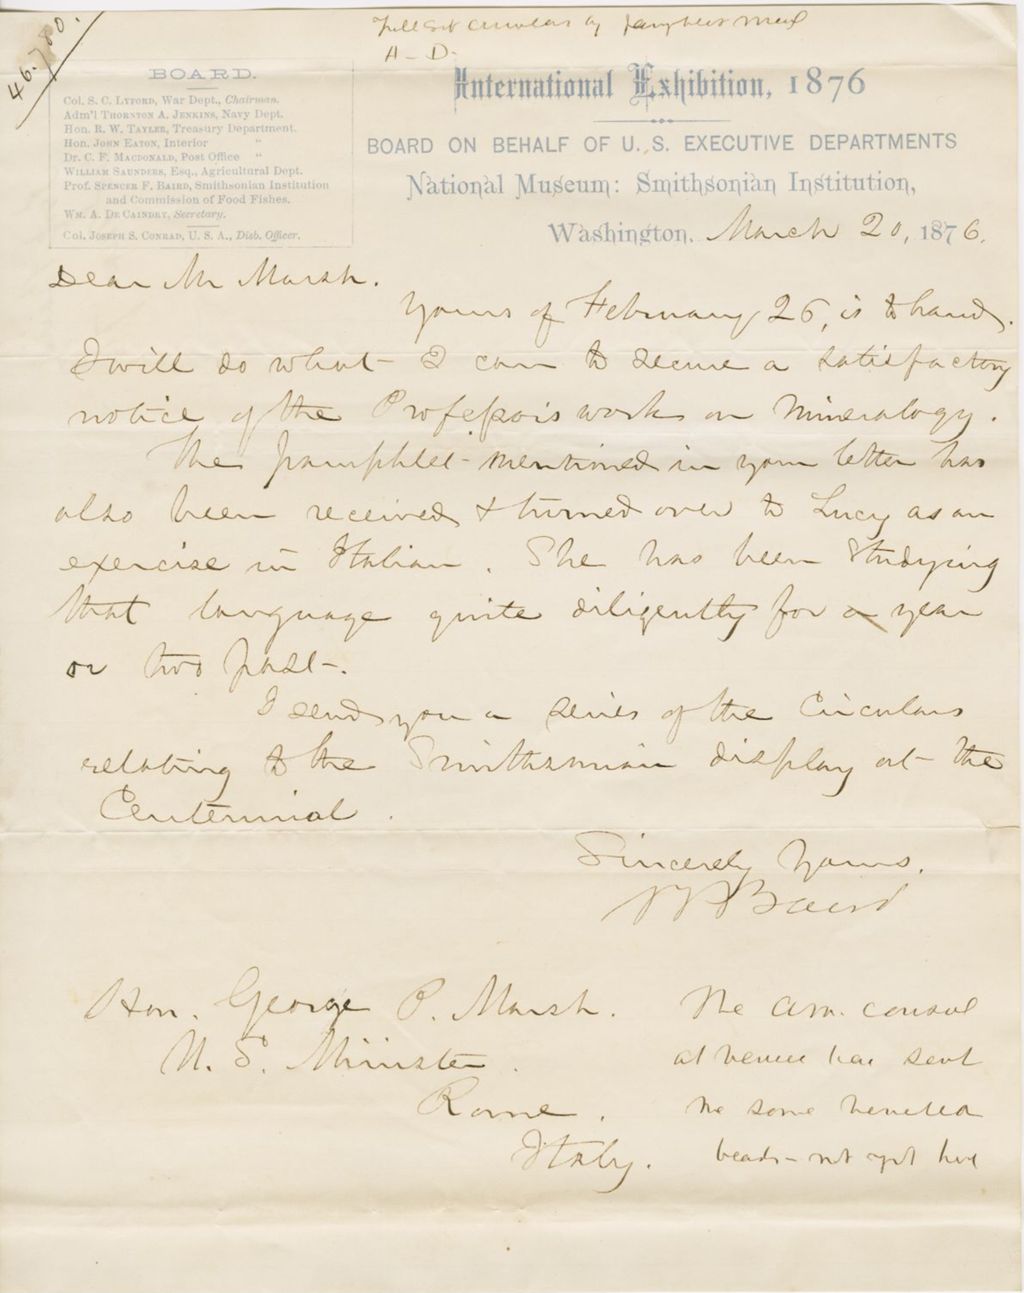 46.780.
Full set Circulars by mail
A-D-
BOARD.
Col. S. C. Lyford, War Dept., Chairman.
Adm'l Thornton A. Jenkins, Navy Dept.
Hon. R. W. Tayler, Treasury Department.
Hon. John Eaton, Interior "
Dr. C. F. Macdonald, Post Office "
William Saunders, Esq., Agricultural Dept.
Prof. Spencer F. Baird, Smithsonian Institution
and Commission of Food Fishes.
Wm. A. De Caindry, Secretary.
Col. Joseph S. Conrad, U. S. A., Disb. Officer.
International Exhibition, 1876
BOARD ON BEHALF OF U. S. EXECUTIVE DEPARTMENTS
National Museum: Smithsonian Institution,
Washington, March 20, 1876.
Dear Mr Marsh.
Yours of February 26, is to hand.
I will do what I can to secure a satisfactory
notice of the Professors work on Mineralogy.
The pamphlet mentioned in your letter has
also been received & turned over to Lucy as an
exercise in Italian. She has been studying
that language quite diligently for a year
or two past-.
I send you a series of the Circulars
relating to the Smithsonian display at the
Centennial.
Sincerely Yours,
S F Baird
Hon. George P. Marsh.
U. S. Minister.
Rome.
Italy.
The Am. consul
at Venice has sent
me some Venetian
beads - not yet here